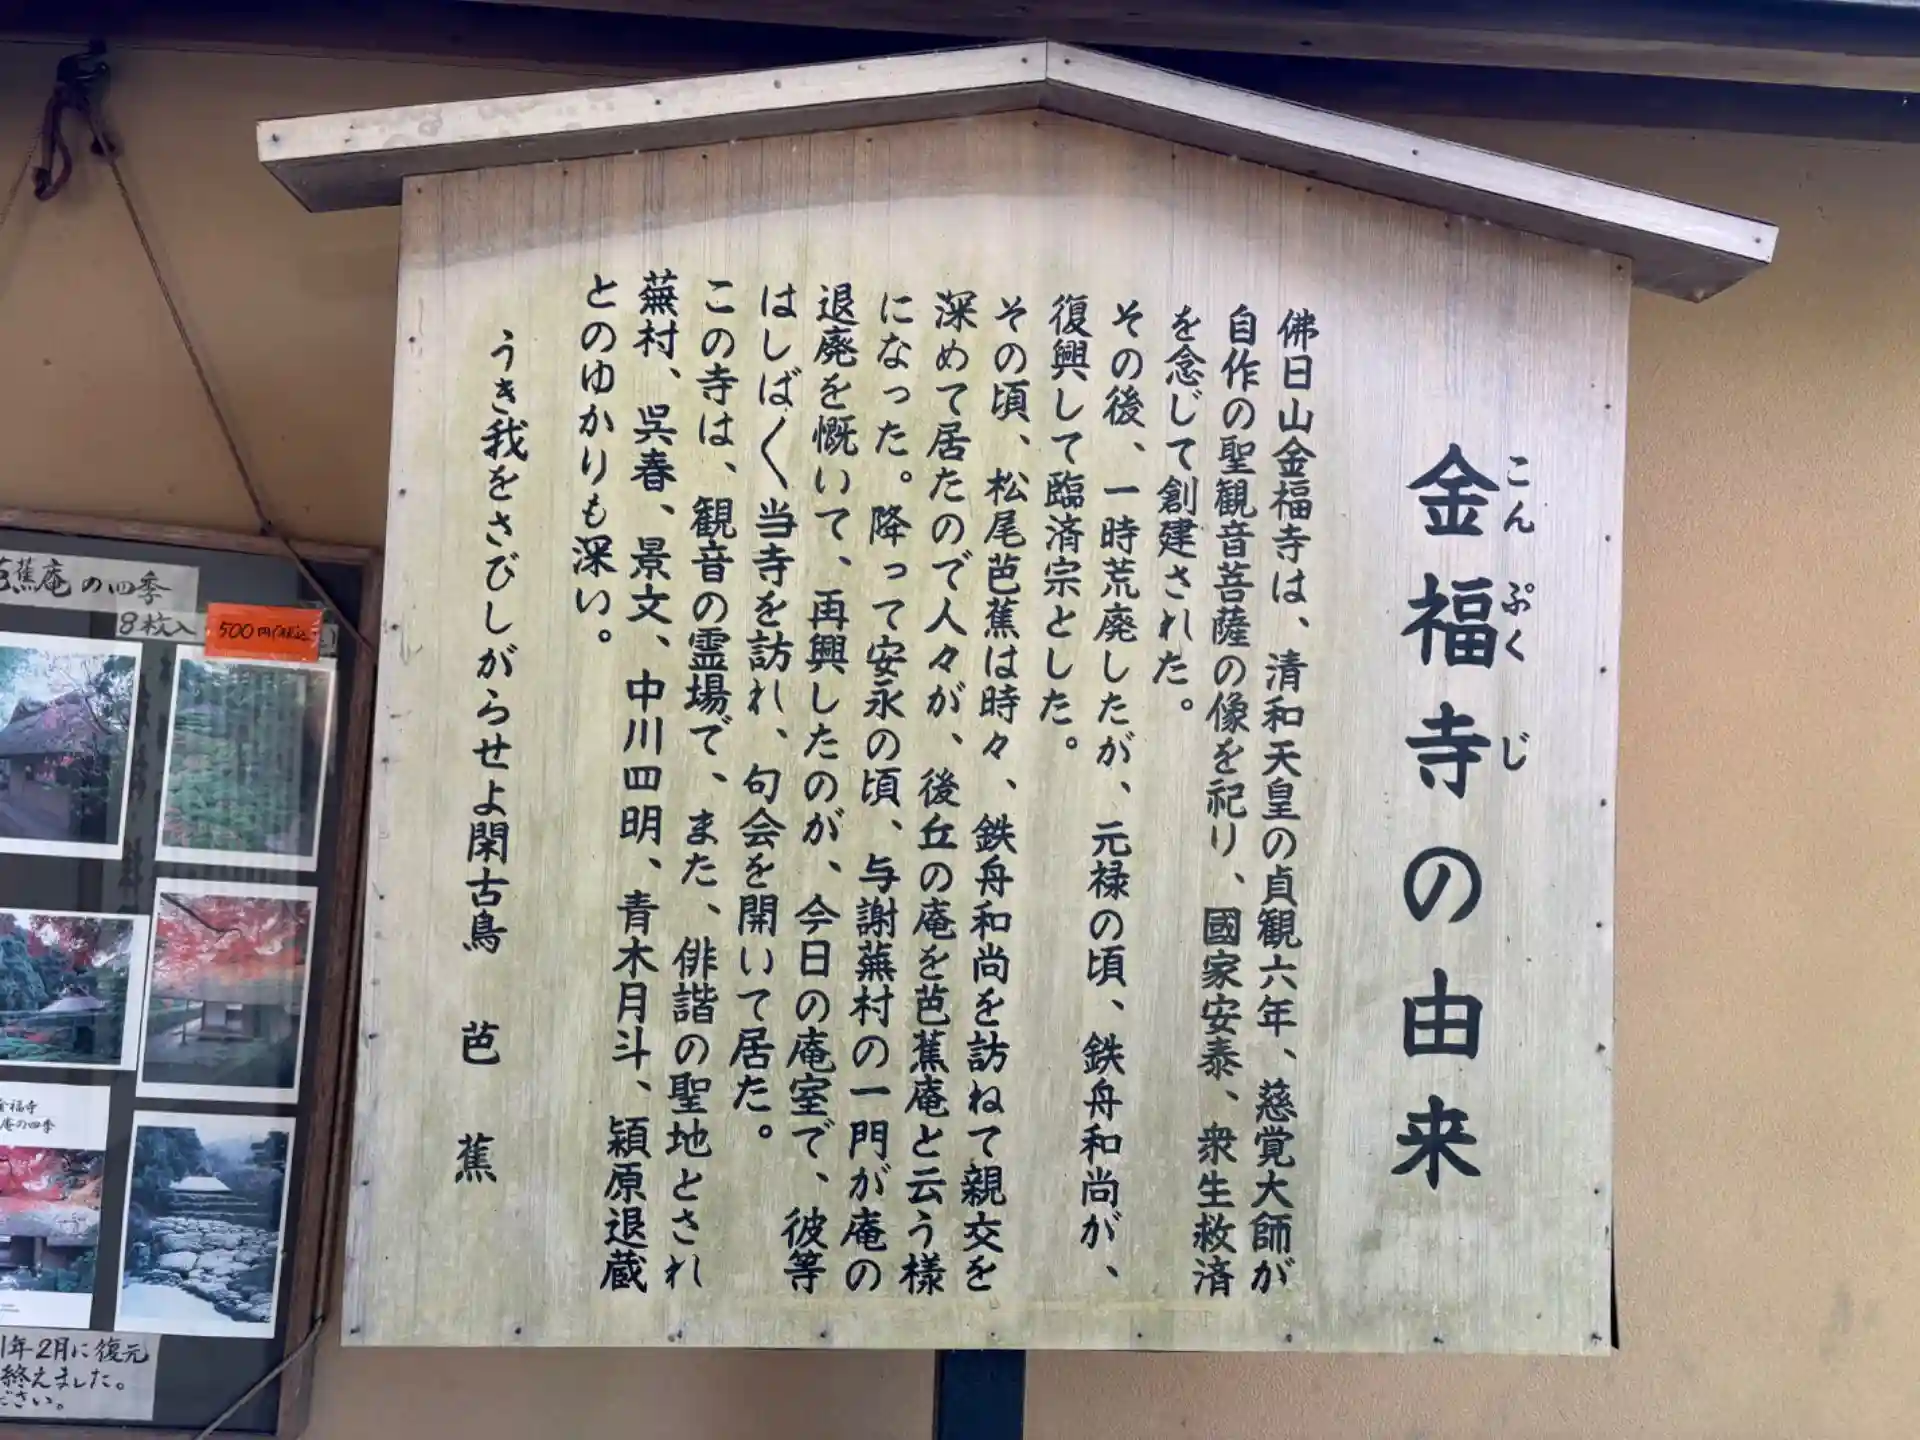 金福寺の由来
こんぷくじ
佛日山金福寺は、清和天皇の貞観六年、慈覚大師が
自作の聖観音菩薩の像を祀り、國家安泰、衆生救済
を念じて創建された。
その後、一時荒廃したが、元禄の頃、鉄舟和尚が、
復興して臨済宗とした。
その頃、松尾芭蕉は時々、鉄舟和尚を訪ねて親交を
深めて居たので人々が、後丘の庵を芭蕉庵と云う様
になった。降って安永の頃、与謝蕪村の一門が庵の
退廃を慨いて、再興したのが、今日の庵室で、彼等
はしば〱当寺を訪れ、句会を開いて居た。
この寺は、観音の霊場で、また、俳諧の聖地とされ
蕪村、呉春、景文、中川四明、青木月斗、潁原退蔵
とのゆかりも深い。
うき我をさびしがらせよ閑古鳥 芭蕉
芭蕉庵の四季
8枚入
500円(税込)
金福寺
庵の四季
1年2月に復元
終えました。
ださい。